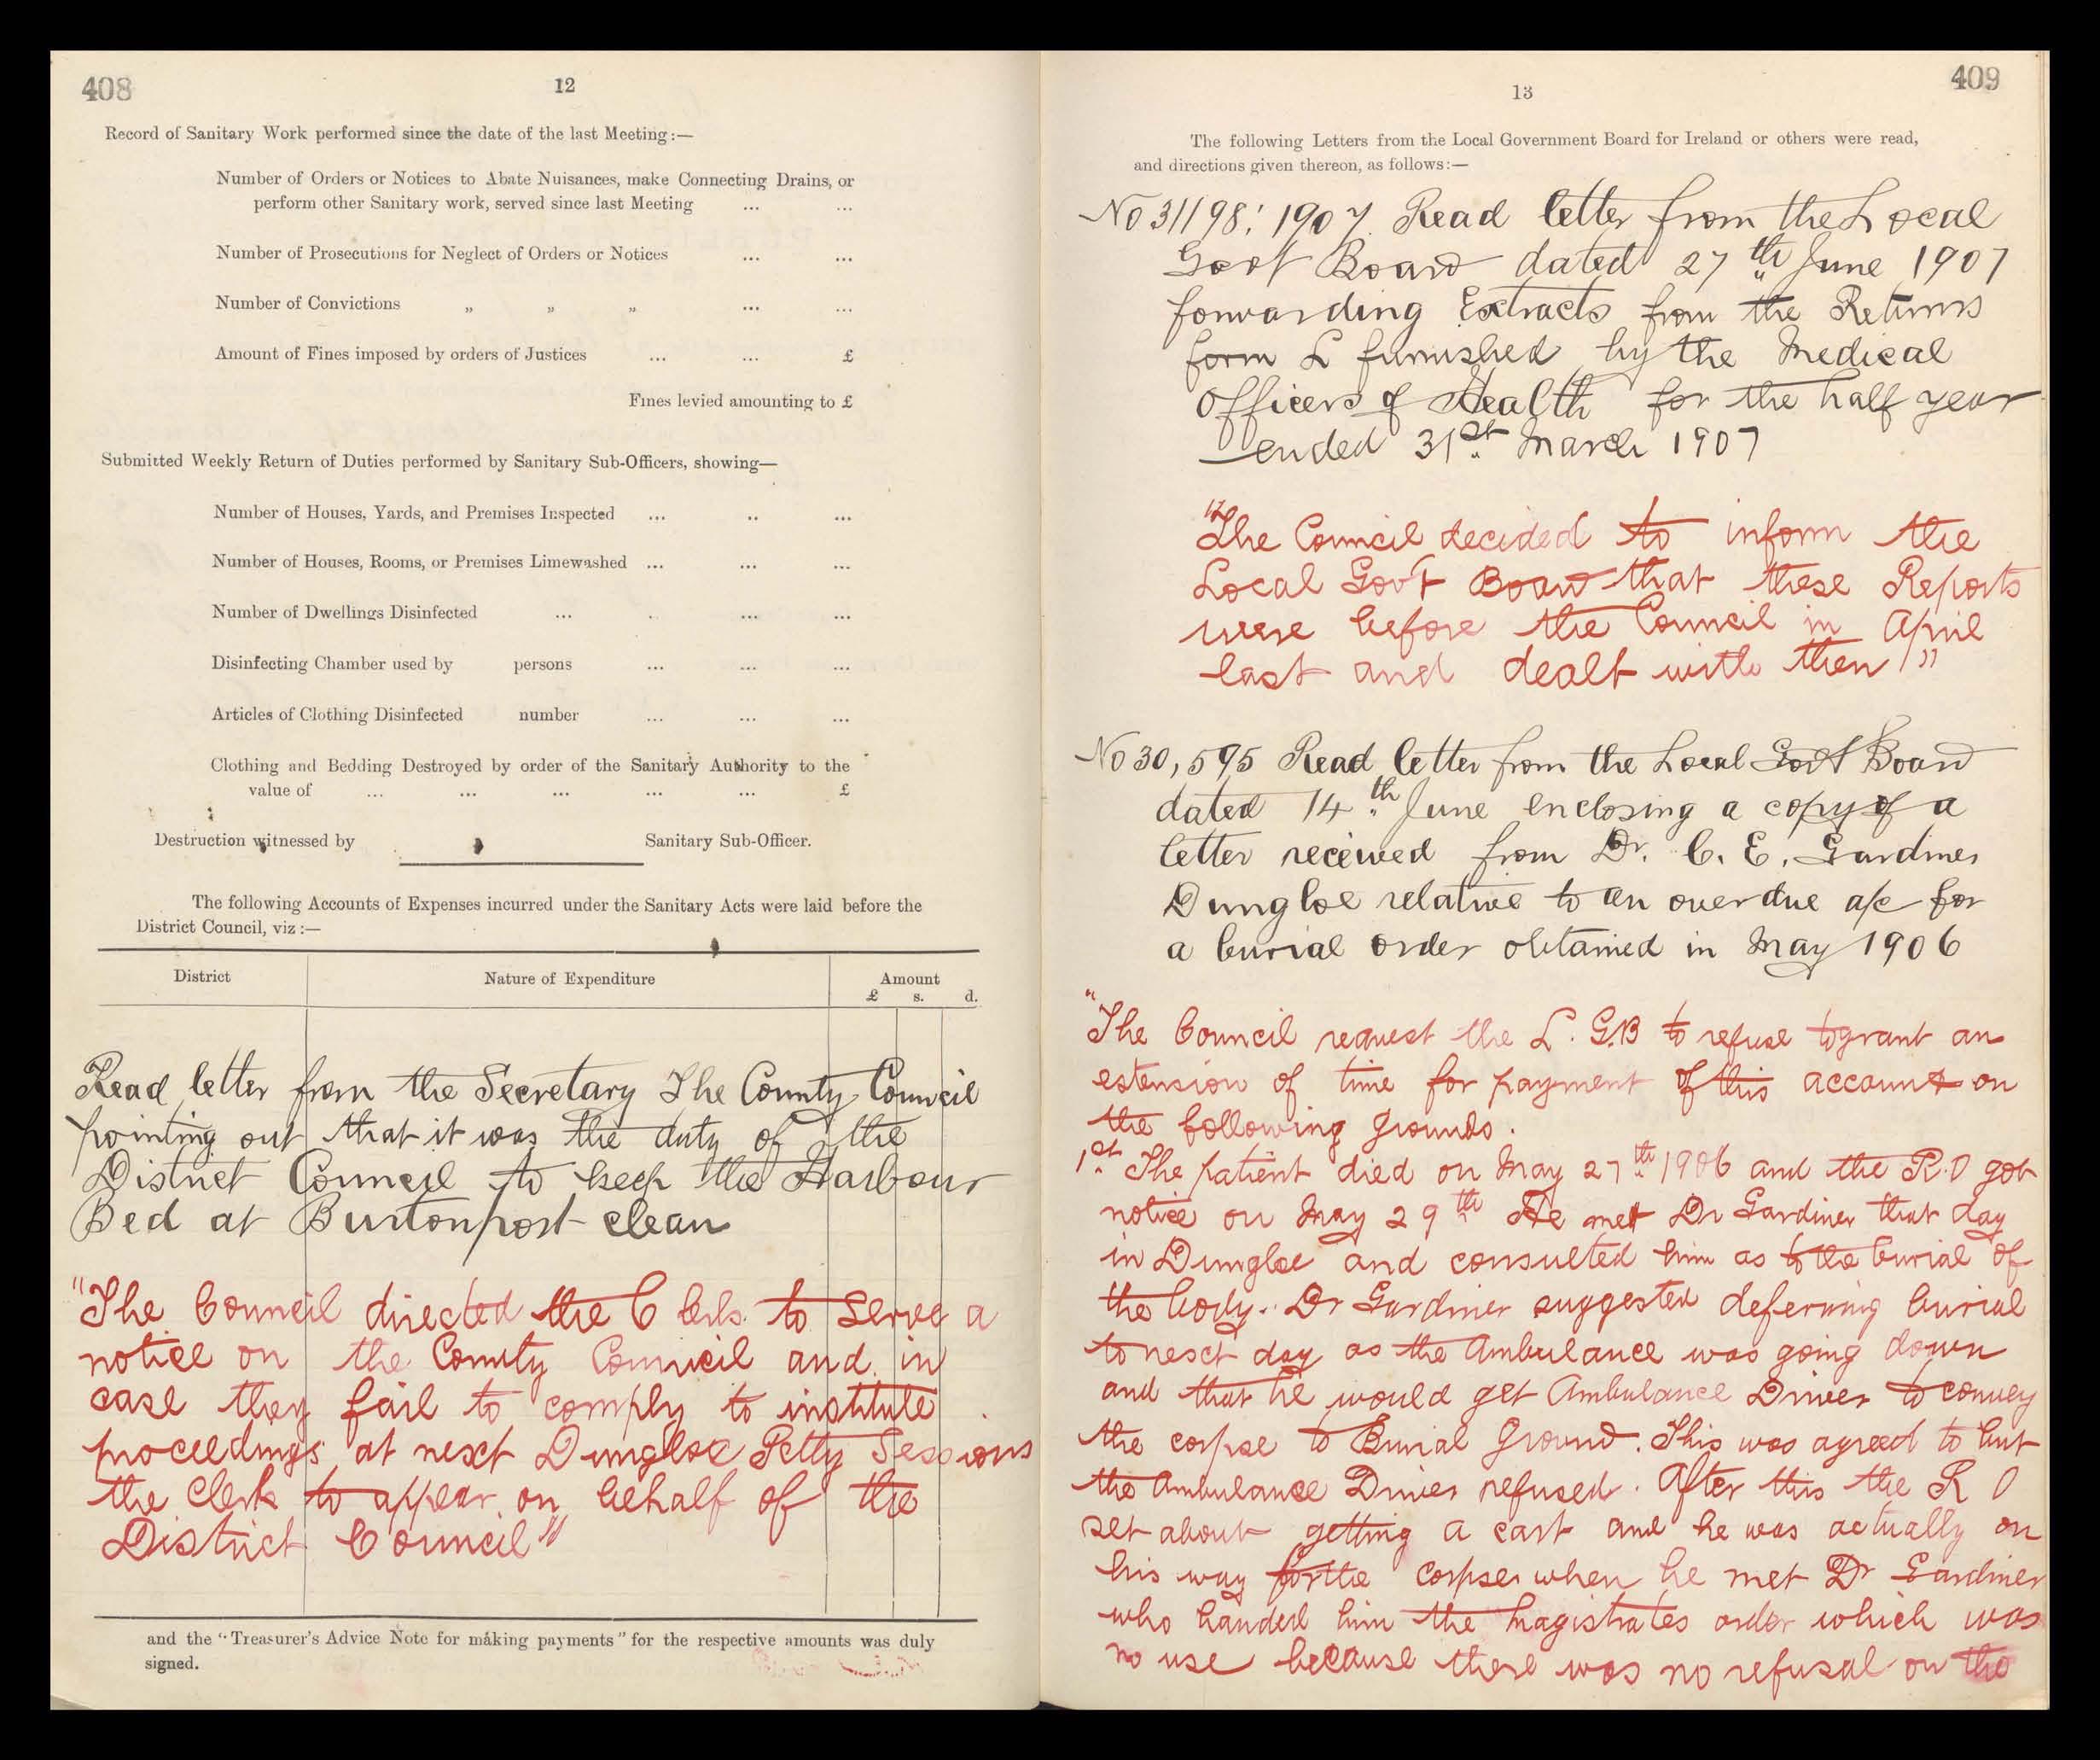 408
12
Record of Sanitary Work performed since the date of the last Meeting:—
Number of Orders or Notices to Abate Nuisances, make Connecting Drains, or
perform other Sanitary work, served since last Meeting ... ...
Number of Prosecutions for Neglect of Orders or Notices ... ...
Number of Convictions „ „ „ ... ...
Amount of Fines imposed by orders of Justices ... ... £
Fines levied amounting to £
Submitted Weekly Return of Duties performed by Sanitary Sub-Officers, showing—
Number of Houses, Yards, and Premises Inspected ... .. ...
Number of Houses, Rooms, or Premises Limewashed ... ... ...
Number of Dwellings Disinfected ... . ... ...
Disinfecting Chamber used by persons ... ... ...
Articles of Clothing Disinfected number ... ... ...
Clothing and Bedding Destroyed by order of the Sanitary Authority to the
value of ... ... ... ... ... £
Destruction witnessed by Sanitary Sub-Officer.
The following Accounts of Expenses incurred under the Sanitary Acts were laid before the
District Council, viz :—
District Nature of Expenditure Amount
£ s. d.
Read letter from the Secretary The County Council
pointing out that it was the duty of the
District Council to keep the Harbour
Bed at Burtonport clean
"The Council directed the Clerk to serve a
notice on the County Council and in
case they fail to comply to institute
proceedings at next Dungloe Petty Sessions
the Clerk to appear on behalf of the
District Council"
and the "Treasurer's Advice Note for making payments" for the respective amounts was duly
signed.
409
13
The following Letters from the Local Government Board for Ireland or others were read,
and directions given thereon, as follows:—
No 31198: 1907. Read letter from the Local
Govt Board dated 27th June 1907
forwarding Extracts from the Returns
form L furnished by the Medical
Officers of Health for the half year
ended 31st March 1907
"The Council decided to inform the
Local Gov't Board that these Reports
were before the Council in April
last and dealt with then"
No 30,595 Read letter from the Local Govt Board
dated 14th June enclosing a copy of a
letter received from Dr. C. E. Gardiner
Dungloe relative to an overdue a/c for
a burial order obtained in May 1906
"The Council request the L. G.B to refuse to grant an
extension of time for payment of this account on
the following grounds.
1st The patient died on May 27th 1906 and the R.O got
notice on May 29th He met Dr Gardiner that day
in Dungloe and consulted him as to the burial of
the body. Dr Gardiner suggested deferring burial
to next day as the Ambulance was going down
and that he would get Ambulance Driver to convey
the corpse to Burial Ground. This was agreed to but
the Ambulance Driver refused. After this the R O
set about getting a cart and he was actually on
his way for the corpse when he met Dr Gardiner
who handed him the Magistrates order which was
no use because there was no refusal on the